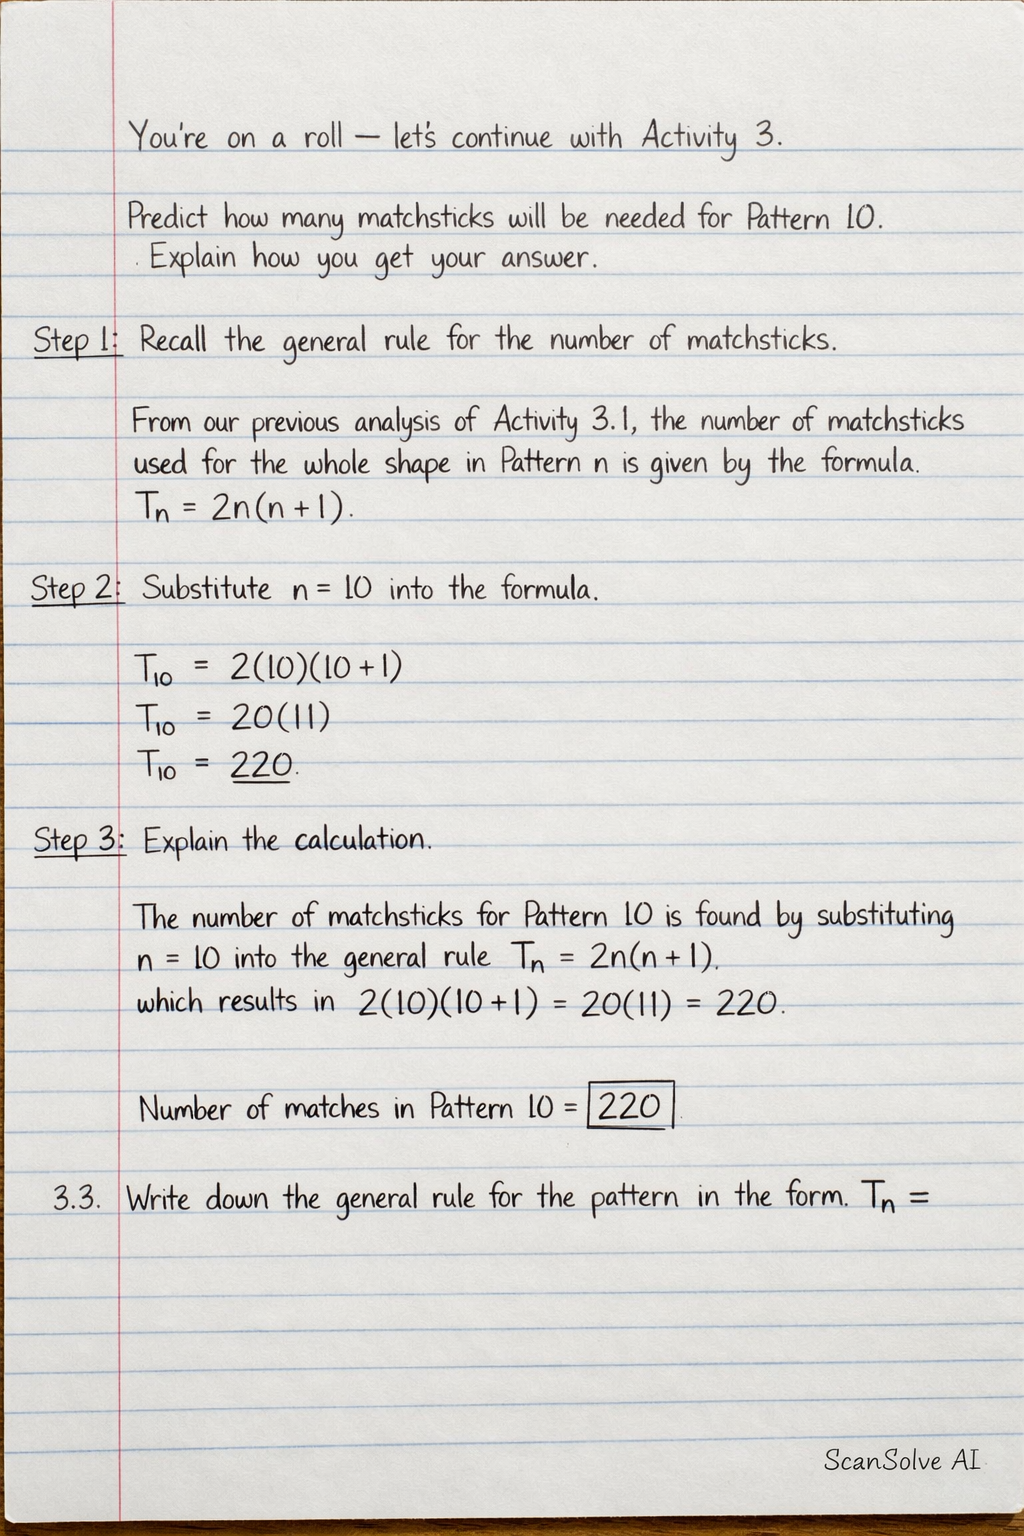 You're on a roll — let's continue with Activity 3.
Predict how many matchsticks will be needed for Pattern 10.
. Explain how you get your answer.
Step 1: Recall the general rule for the number of matchsticks.
From our previous analysis of Activity 3.1, the number of matchsticks
used for the whole shape in Pattern n is given by the formula.
Tₙ = 2n(n + 1).
Step 2: Substitute n = 10 into the formula.
T₁₀ = 2(10)(10 + 1)
T₁₀ = 20(11)
T₁₀ = 220.
Step 3: Explain the calculation.
The number of matchsticks for Pattern 10 is found by substituting
n = 10 into the general rule Tₙ = 2n(n + 1).
which results in 2(10)(10 + 1) = 20(11) = 220.
Number of matches in Pattern 10 = 220.
3.3. Write down the general rule for the pattern in the form. Tₙ =
ScanSolve AI